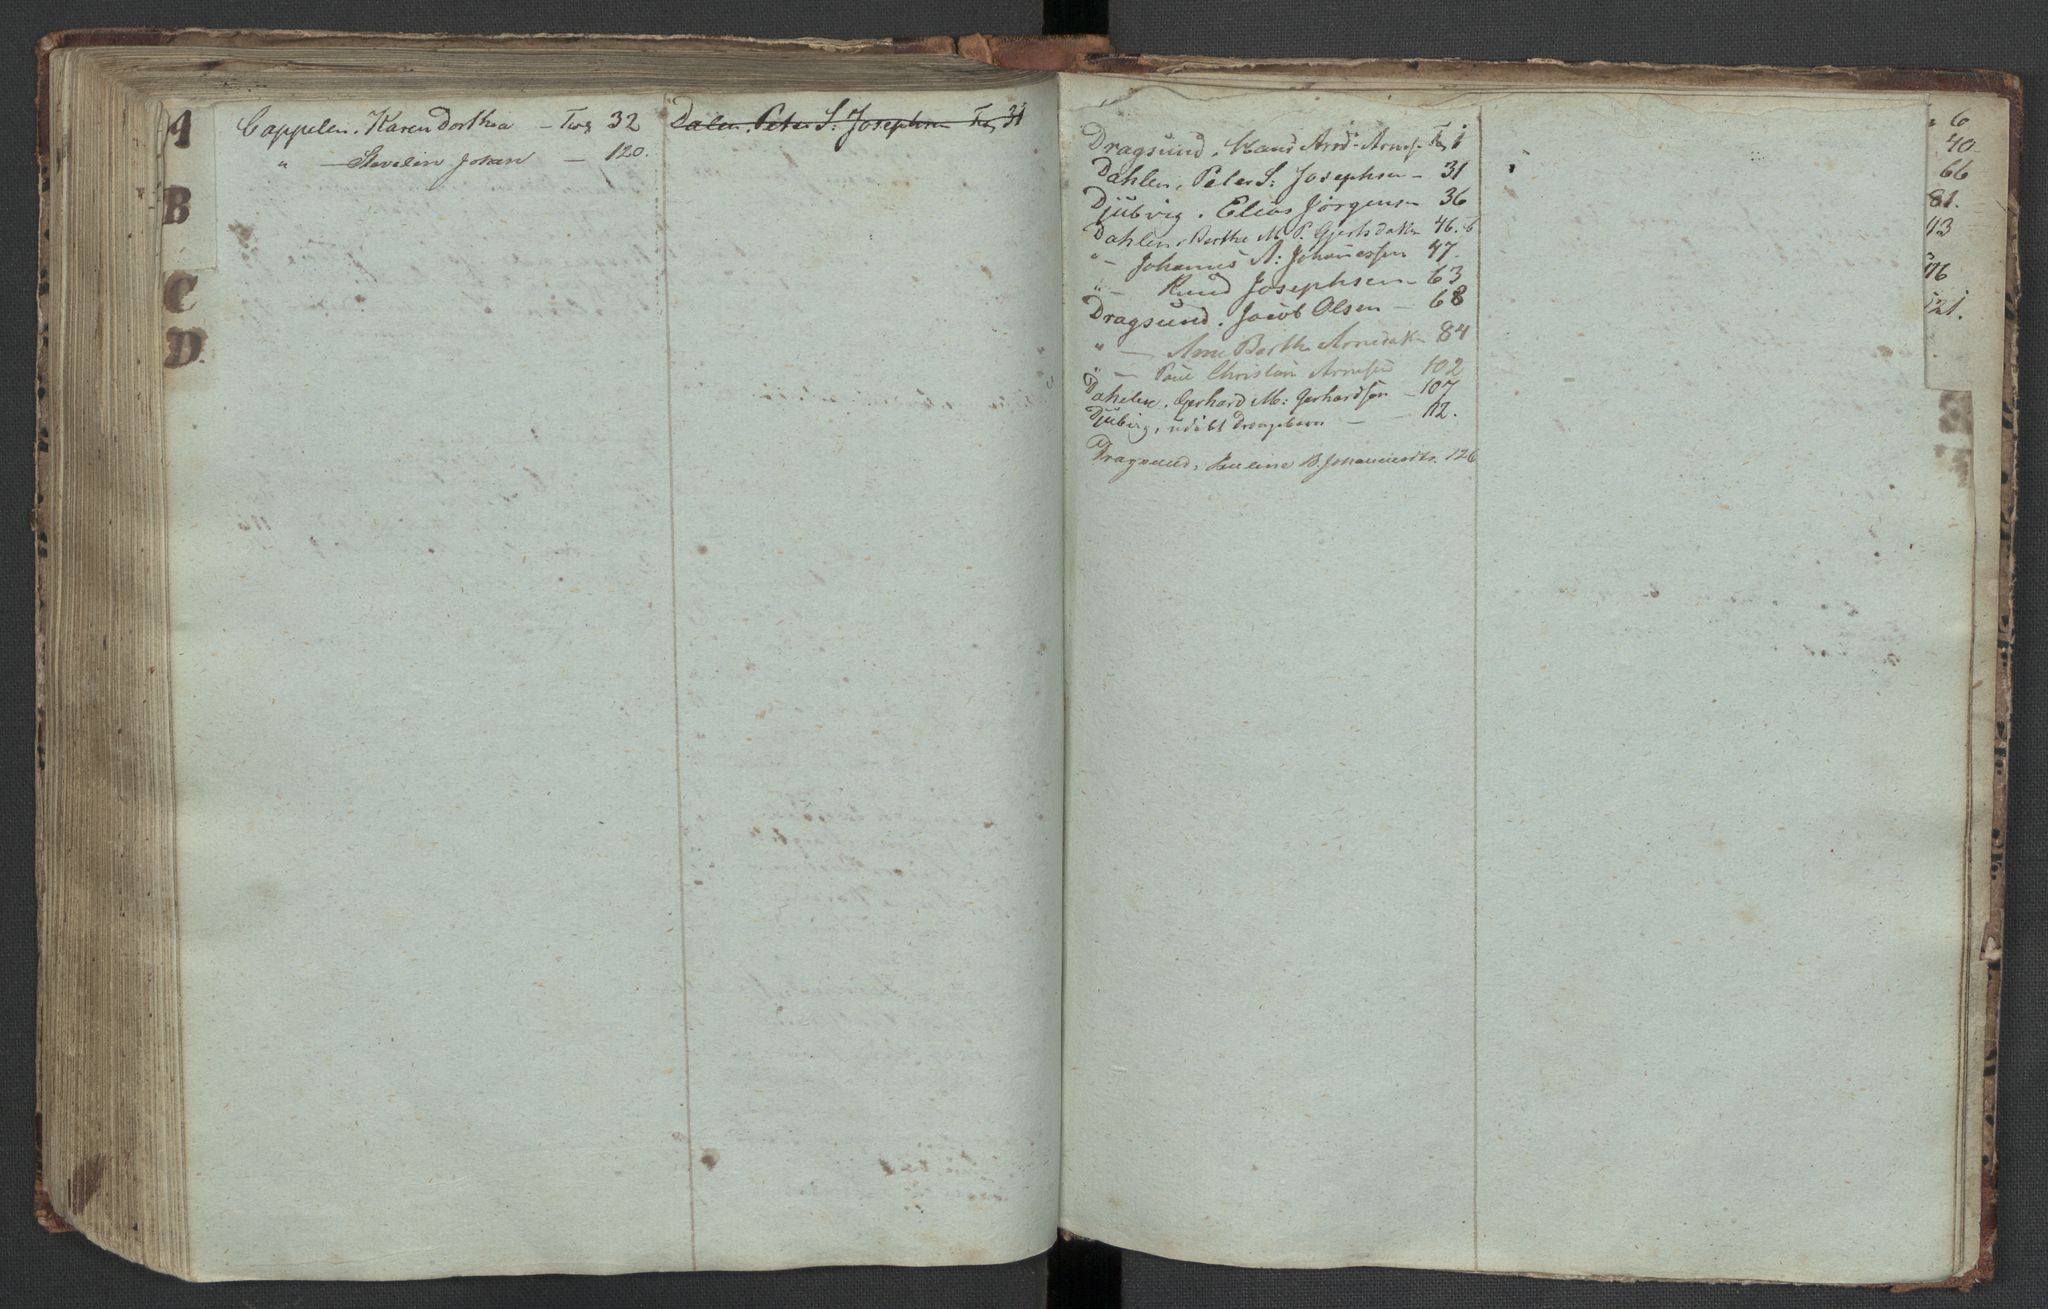 A
B
C
D
Cappelen, Karen Dorthea — 32
" — Severin Johan — 120.
Dalen, Peter S: Josephsen 31
Dragsund, Knud Arnesen 1
Dahlen, Peter S: Josephsen — 31
Djubvig, Elias Jørgensen 36
Dahlen, Berthe M. P. Gjertsdatter 46. b
" — Johannes A: Johanessen 47.
" — Knud Josephsen — 63
Dragsund, Jacob Olsen — 68
" — Ane Berthe Arnedatter 84
" — Paul Christian Arnesen 102
Dahlen, Gerhard M: Gerhardsen — 107
Djubvig, udøbt Drengebarn — 112.
Dragsund, Pauline B. Johannesdtr. 126
6
40
66
81.
43
76
121.